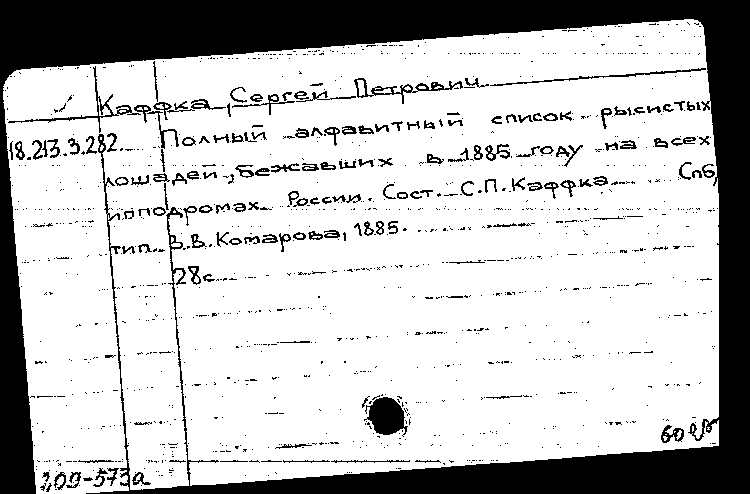 Каффка, Сергей Петрович
18.213.3.282. Полный алфавитный список рысистых
лошадей, бежавших в 1885 году на всех
ипподромах России. Сост. С.П.Каффка Спб,
тип. В.В.Комарова, 1885.
28с
209-573а